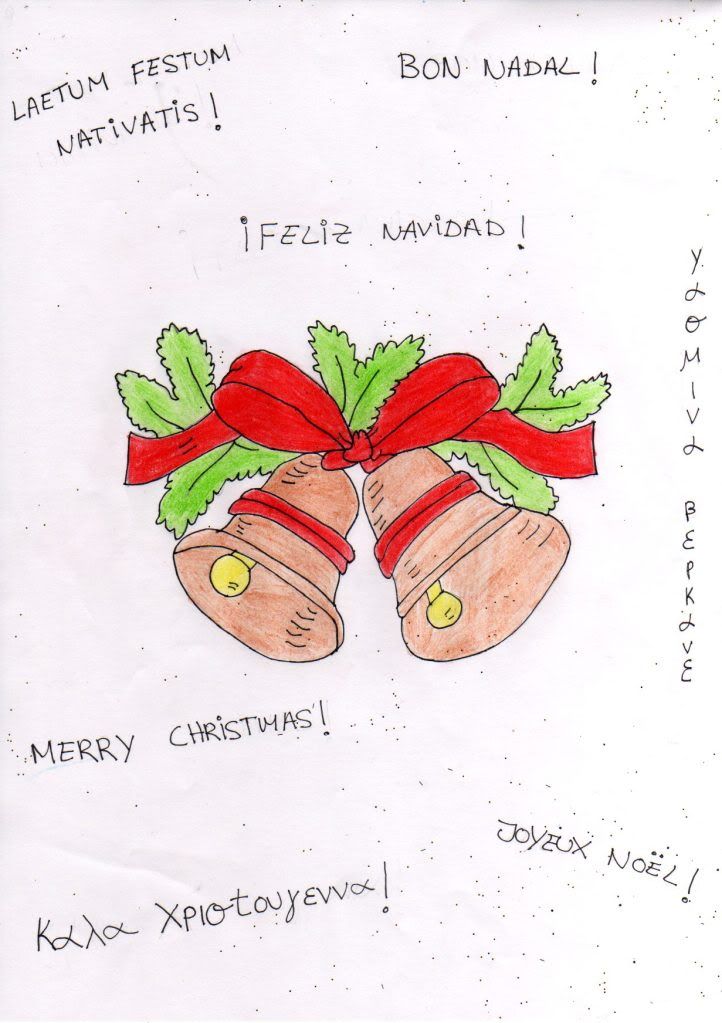 LAETUM FESTUM
NATIVATIS!
BON NADAL!
¡FELIZ NAVIDAD!
ΥασΜΙΝα ΒΕΡΚαΝΕ
MERRY CHRISTMAS!
JOYEUX NOËL!
Καλα Χριστουγεννα!